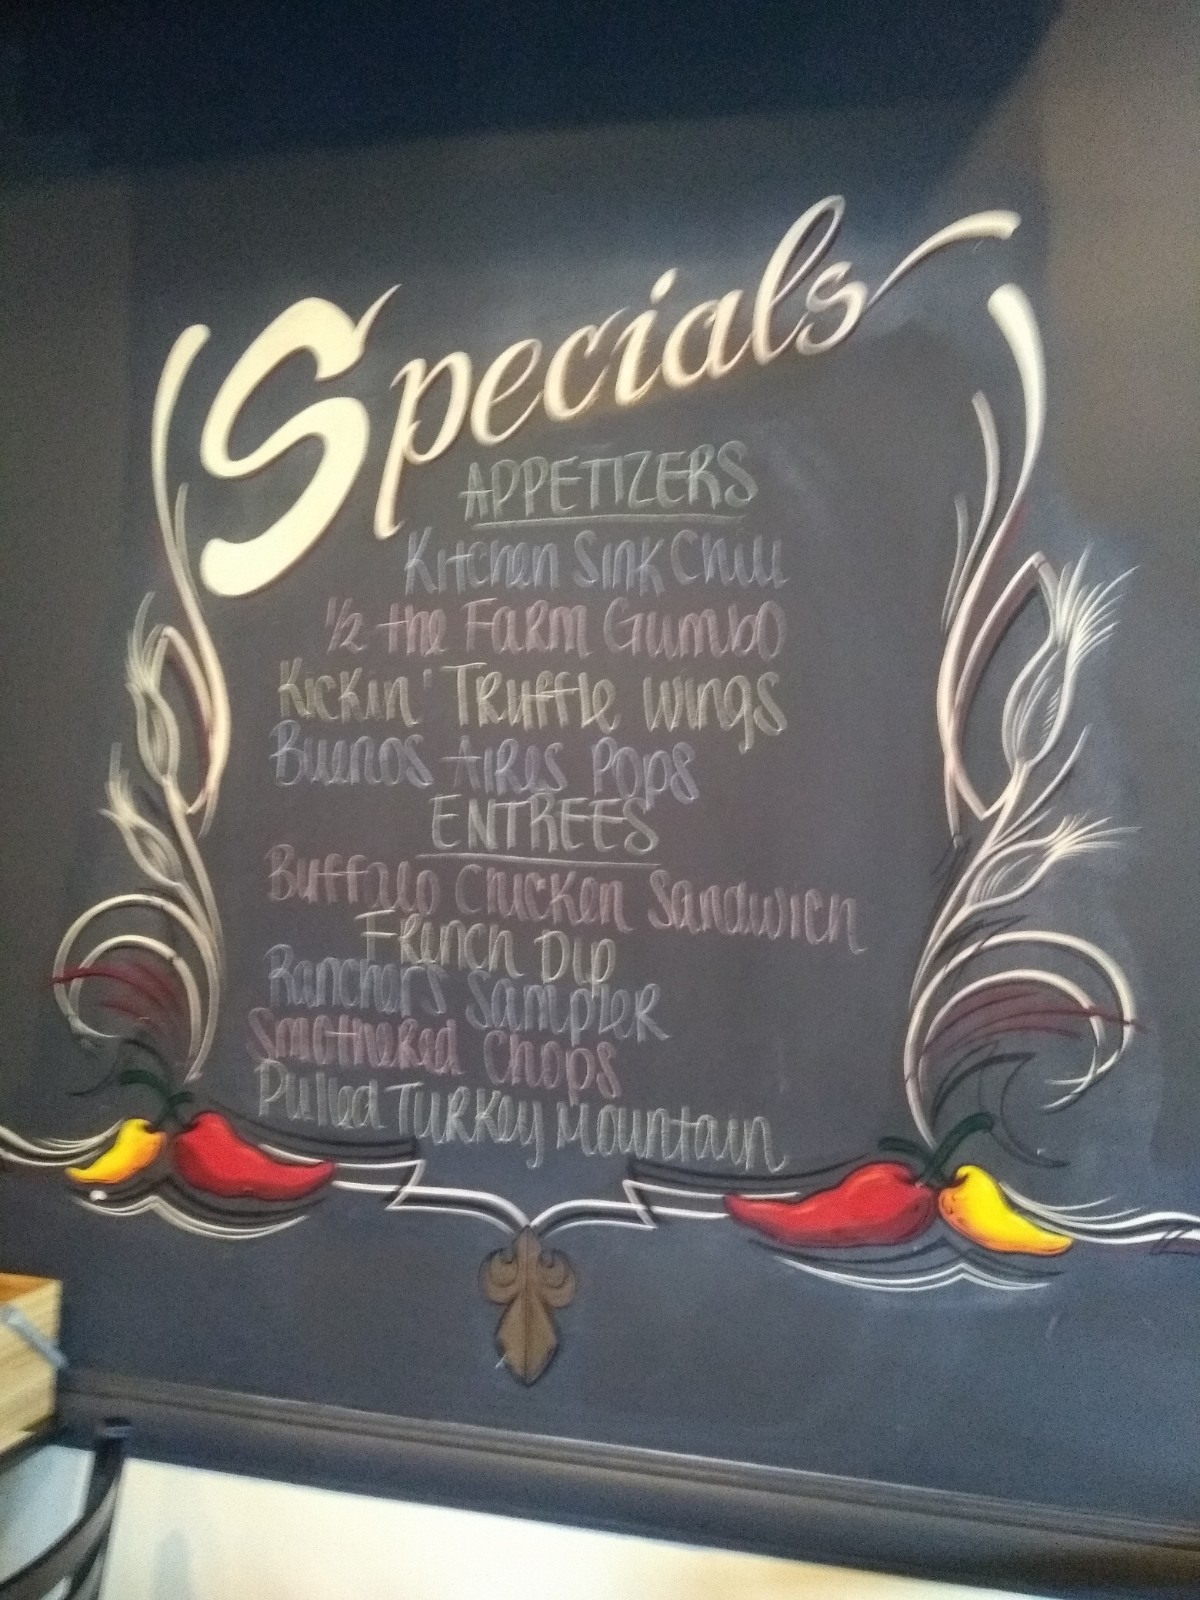 Specials
APPETIZERS
Kitchen Sink Chili
1/2 the Farm Gumbo
Kickin' Truffle Wings
Buenos Aires Pops
ENTREES
Buffalo Chicken Sandwich
French Dip
Ranchers Sampler
Smothered Chops
Pulled Turkey Mountain